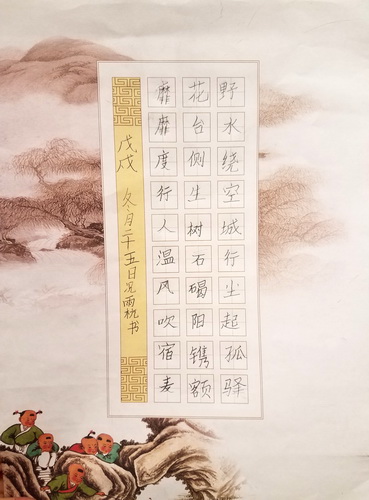 野水绕空城行尘起孤驿
花台侧生树石碣阳镌额
靡靡度行人温风吹宿麦
戊戌 冬月二十五日况雨书